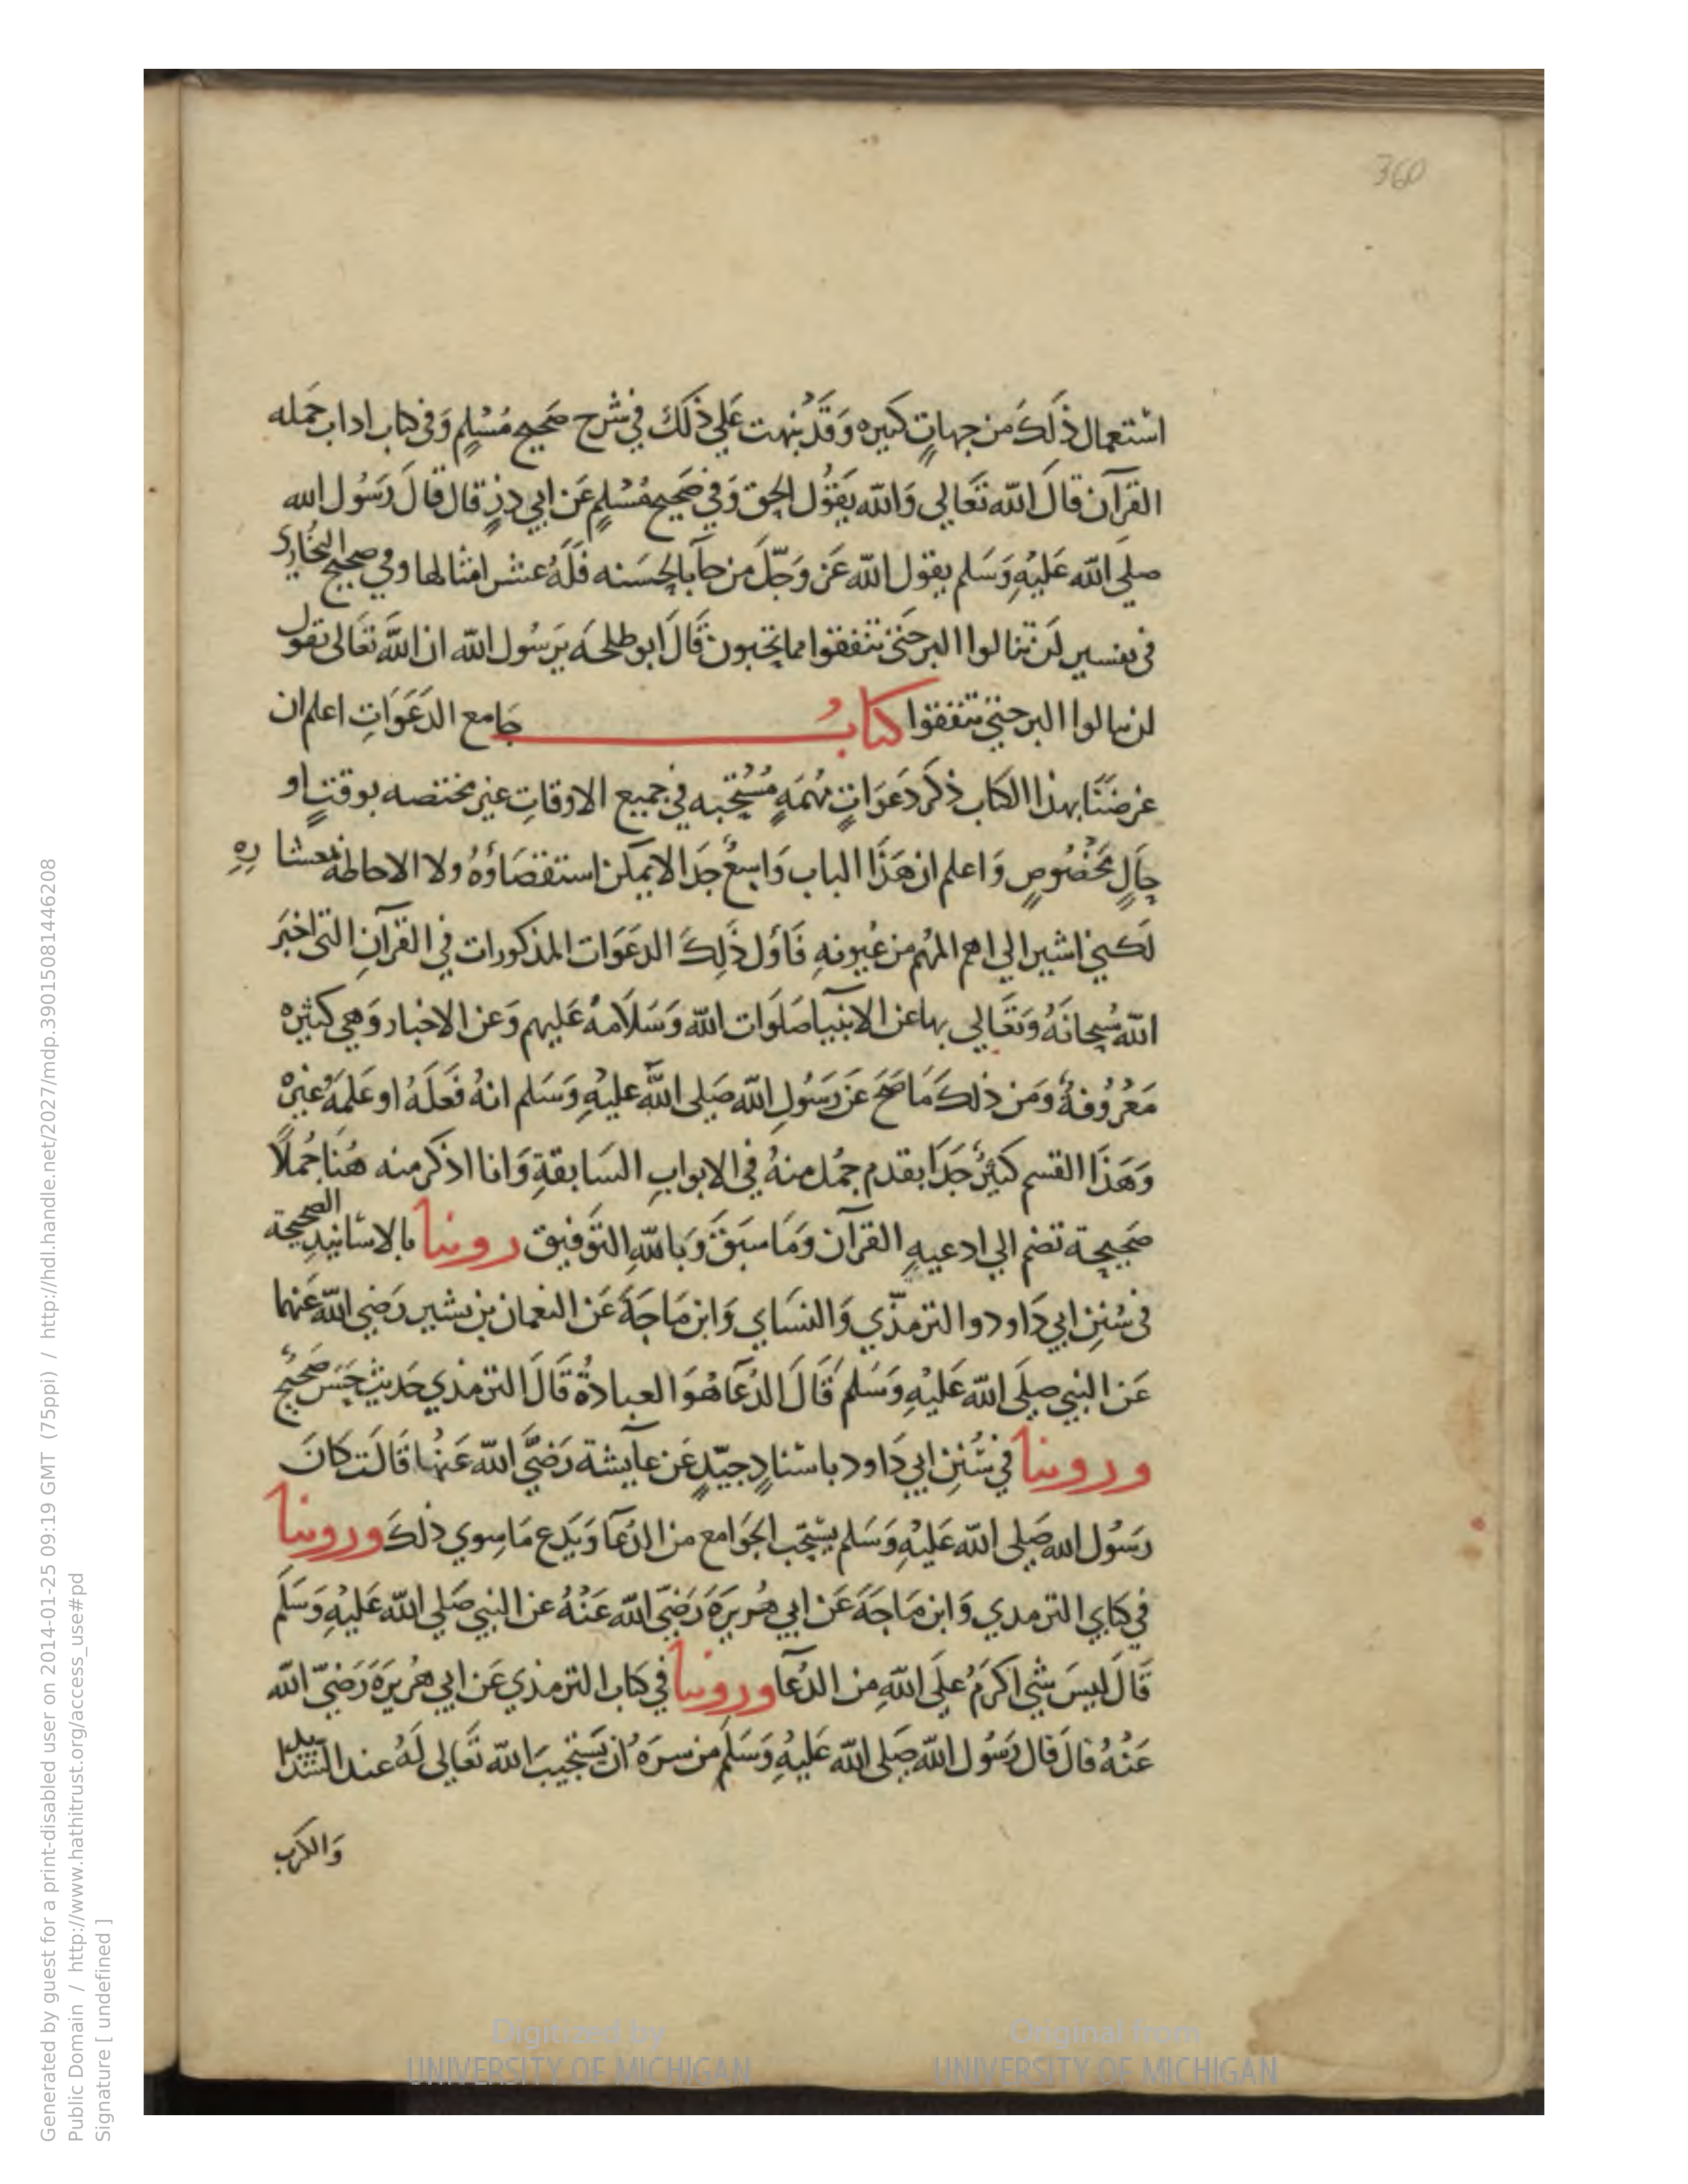 360
استعمال ذَلِكَ من جهاتٍ كثيره وَقَد نبهت عَلي ذلكَ في شرح صَحيح مُسْلِمٍ وَفى كتاب اداب حَمله
القرآن قالَ الله تَعَالي وَالله يَقوُل الحق وَفي صَحيح مُسْلِمٍ عَن ابي ذرٍ قال قالَ رَسُول الله
صلي الله عَليْهِ وَسَلم يقول الله عَز وَجَلَّ من جآ بالحسَنه فَلَهُ عشر امثالها وفي صحيح البُخاري
فى تفسير لَن تنالوا البر حَتى تنفقوا مما تحبون قَالَ ابو طلحَه يَرَسُول الله ان اللهَ تعَالى تقول
لن تنالوا البر حتى تنفقوا كتابُ جَامع الدَعَوَاتِ اعلم ان
غرضنَا بهذا الكتاب ذكر دَعَوَاتٍ مُهمَةٍ مُسْتحَبه في جميع الاوقاتِ غير مختصه بوقتٍ او
حَالٍ مَخْصُوصٍ وَاعلم ان هَذَا الباب وَاسِعٌ جدَا لا يمكن استقصَاؤهُ ولا الاحاطة بمعشارهِ
لَكني اشير الي اهم المهم من عُيونهِ فَاول ذَلِكَ الدعَوَات المذكورات في القرآنِ التى اخبَر
الله سُبحانَهُ وَتعَالي بها عن الانبيآ صَلَوات الله وَسَلاَمهُ عَليهم وَعن الاخيار وَهي كثيره
مَعْرُوفةٌ وَمَن ذلكَ مَا صَحَ عَن رَسُولِ الله صَلى اللهَ عليْهِ وَسَلم انهُ فَعَلَهُ او عَلمَهُ غيرهْ
وَهَذَا القسم كثيرٌ جدَا تقدم جمُل منهُ في الابوابِ السَابقةِ وَانا اذكر منه هُنَا جُملاً
صَحِيحة تضم الي ادعيهِ القرآن وَمَا سبَقَ وَبالله التوَفيق روينا بالاسَانيدِ الصحيحة
فى سُنِن ابي دَاود والترمذّي وَالنسَاي وَابن مَاجَة عَن النعمان بن بشير رَضي الله عَنهما
عَن النبي صلَي الله عَليْهِ وَسَلم قَالَ الدُعَآ هُوَ العبادةُ قَالَ الترمذي حَديث حَسَن صَحيحٌ
وروينا في سُنِن ابي دَاود باسْنادٍ جيّدٍ عَن عآيشة رَضيَ الله عَنهُا قَالَت كانَ
رَسُول الله صَلي الله عَليْهِ وَسَلم يستحب الجَوَامع من الدُعآ وَيَدع مَا سِوي ذَلكَ وروينا
في كتابي الترمدي وَابن مَاجَة عَن ابي هُريرَة رَضيَ الله عَنْهُ عن النبي صَلي الله عَليْهِ وَسَلم
قَالَ لَيسَ شي اكرَمُ علَى اللهِ من الدُعآ وروينا في كتاب الترمذي عَن ابي هُريرَة رَضيَ الله
عَنْهُ قالَ قال رَسُول الله صَلى الله عَليْهِ وَسَلم من سرَهُ ان يَسْتجيبَ الله تعَالي لَهُ عند الشدايد
وَالكرَب
Generated by guest for a print-disabled user on 2014-01-25 09:19 GMT (75ppi) / http://hdl.handle.net/2027/mdp.39015081446208
Public Domain / http://www.hathitrust.org/access_use#pd
Signature [ undefined ]
Digitized by
UNIVERSITY OF MICHIGAN
Original from
UNIVERSITY OF MICHIGAN